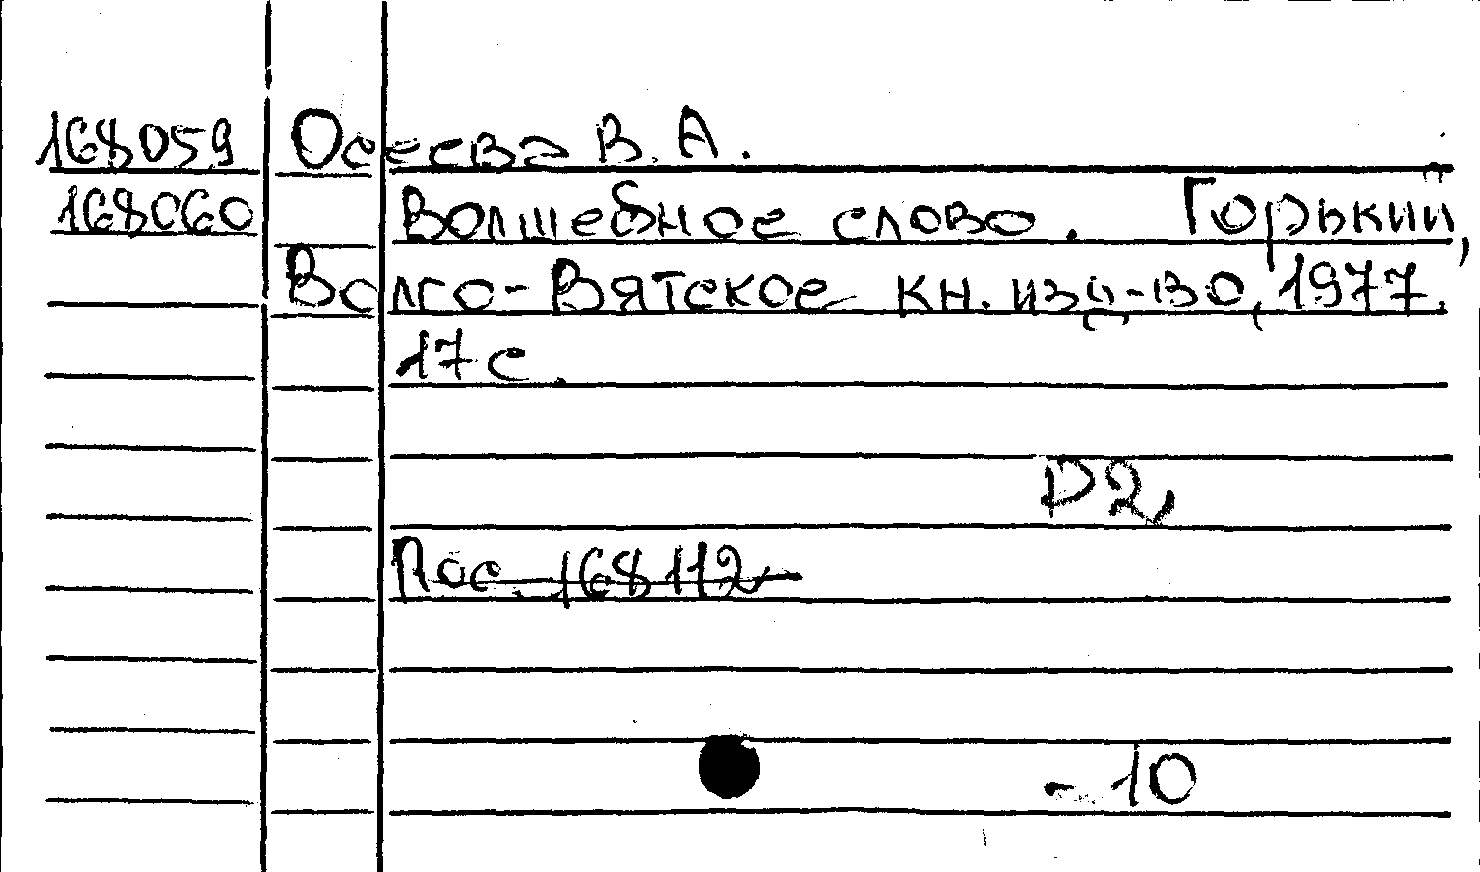 168059 Осеева В. А.
168060 Волшебное слово. Горький,
Волго-Вятское кн. изд-во, 1977.
17 с.
Д2
Пос. 168112
-10